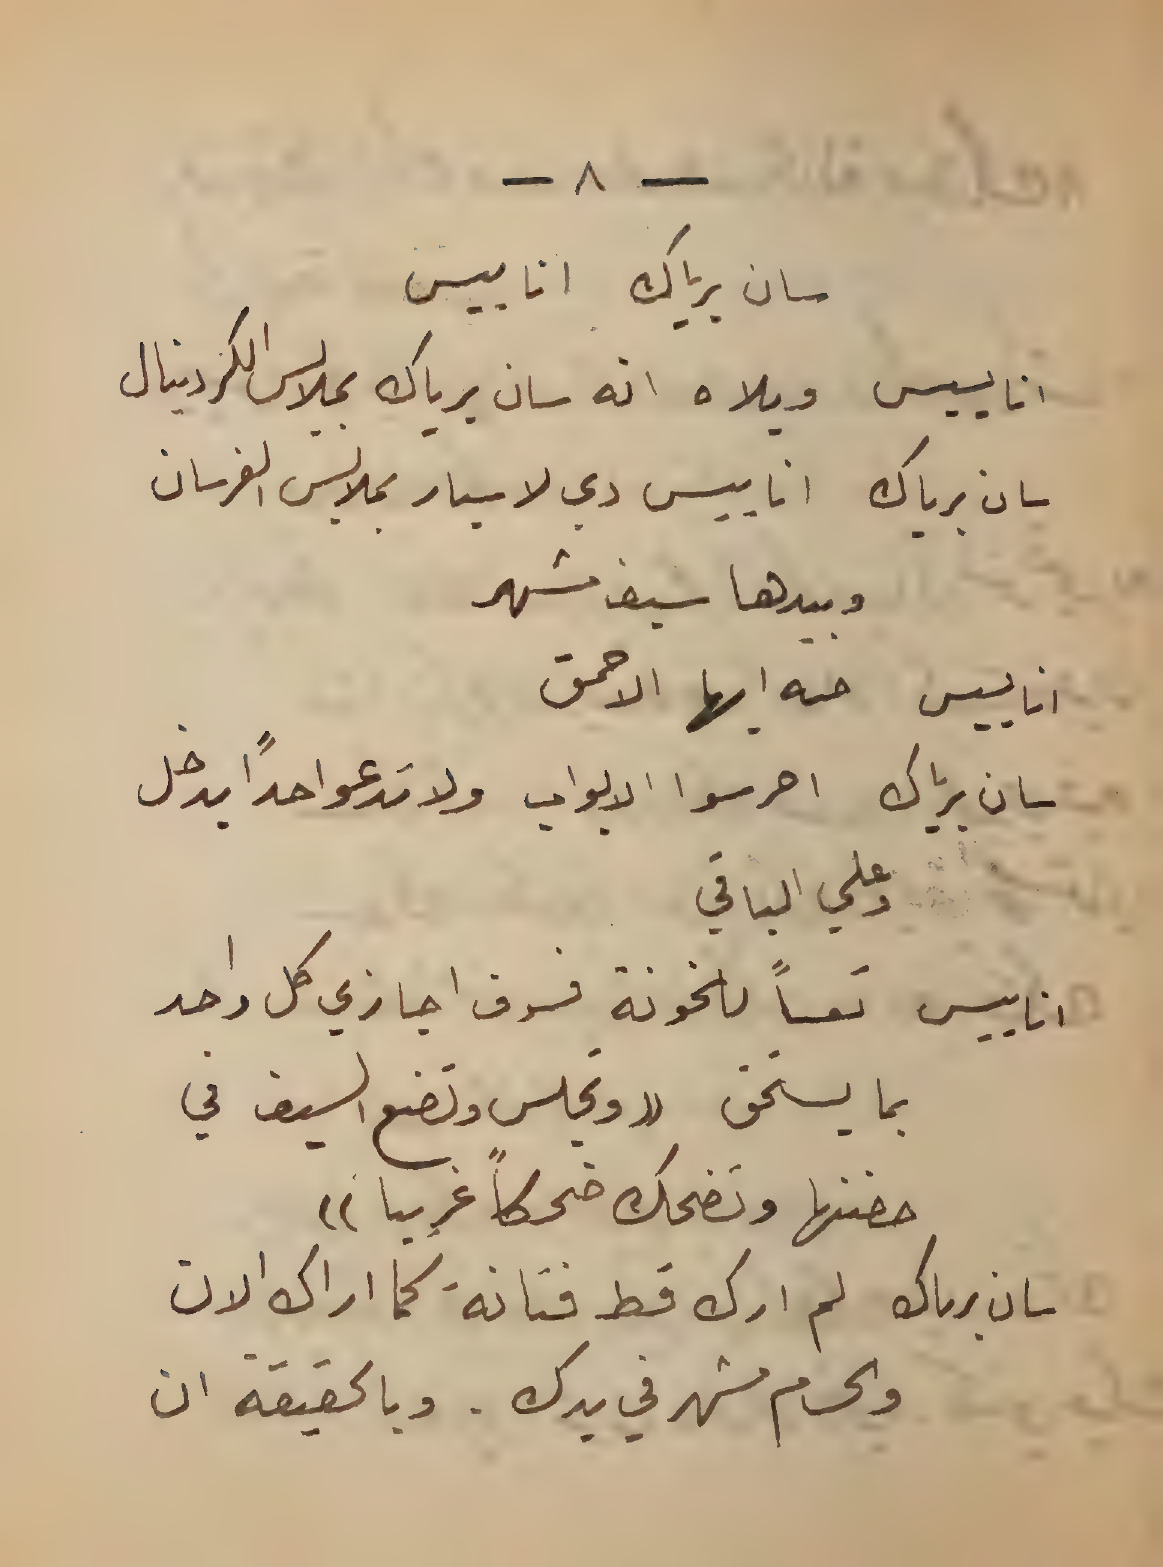 — ٨ —
سان برياك اناييس
اناييس ويلاه انه سان برياك بملابس الكردينال
سان برياك اناييس دي لاميار بملابس الفرسان
وبيدها سيف مشهر
اناييس صه ايها الاحمق
سان برياك احرسوا الابواب ولا تدعوا احداً يدخل
وعلي الباقي
اناييس تعساً للخونة فسوف اجازي كل واحد
بما يستحق «وتجلس وتضع السيف في
حضنها وتضحك ضحكاً غريبا»
سان برياك لم ارك قط فتانة كما اراك الان
والحسام مشهر في يدك . وبالحقيقة ان